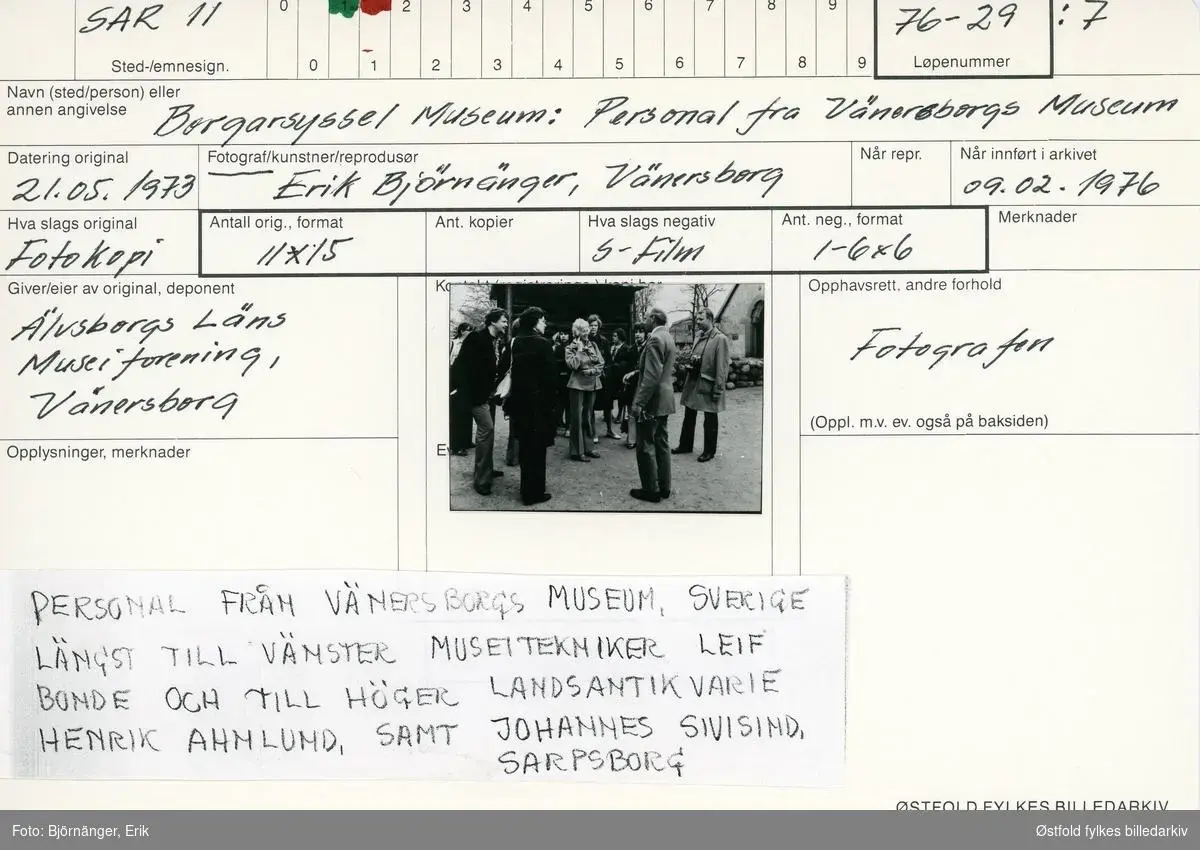 SAR 11
Sted-/emnesign.
0 1 2 3 4 5 6 7 8 9
0 1 2 3 4 5 6 7 8 9
76-29 : 7
Løpenummer
Navn (sted/person) eller
annen angivelse
Borgarsyssel Museum: Personal fra Vänersborgs Museum
Datering original
21.05.1973
Fotograf/kunstner/reprodusør
Erik Björnänger, Vänersborg
Når repr.
Når innført i arkivet
09.02.1976
Hva slags original
Fotokopi
Antall orig., format
11x15
Ant. kopier
Hva slags negativ
S-Film
Ant. neg., format
1-6x6
Merknader
Giver/eier av original, deponent
Älvsborgs Läns
Museiforening,
Vänersborg
Opphavsrett, andre forhold
Fotografen
(Oppl. m.v. ev. også på baksiden)
Opplysninger, merknader
PERSONAL FRÅN VÄNERSBORGS MUSEUM, SVERIGE
LÄNGST TILL VÄNSTER MUSEITEKNIKER LEIF
BONDE OCH TILL HÖGER LANDSANTIKVARIE
HENRIK AHNLUND, SAMT JOHANNES SIVISIND,
SARPSBORG
ØSTFOLD FYLKES BILLEDARKIV
Foto: Björnänger, Erik
Østfold fylkes billedarkiv